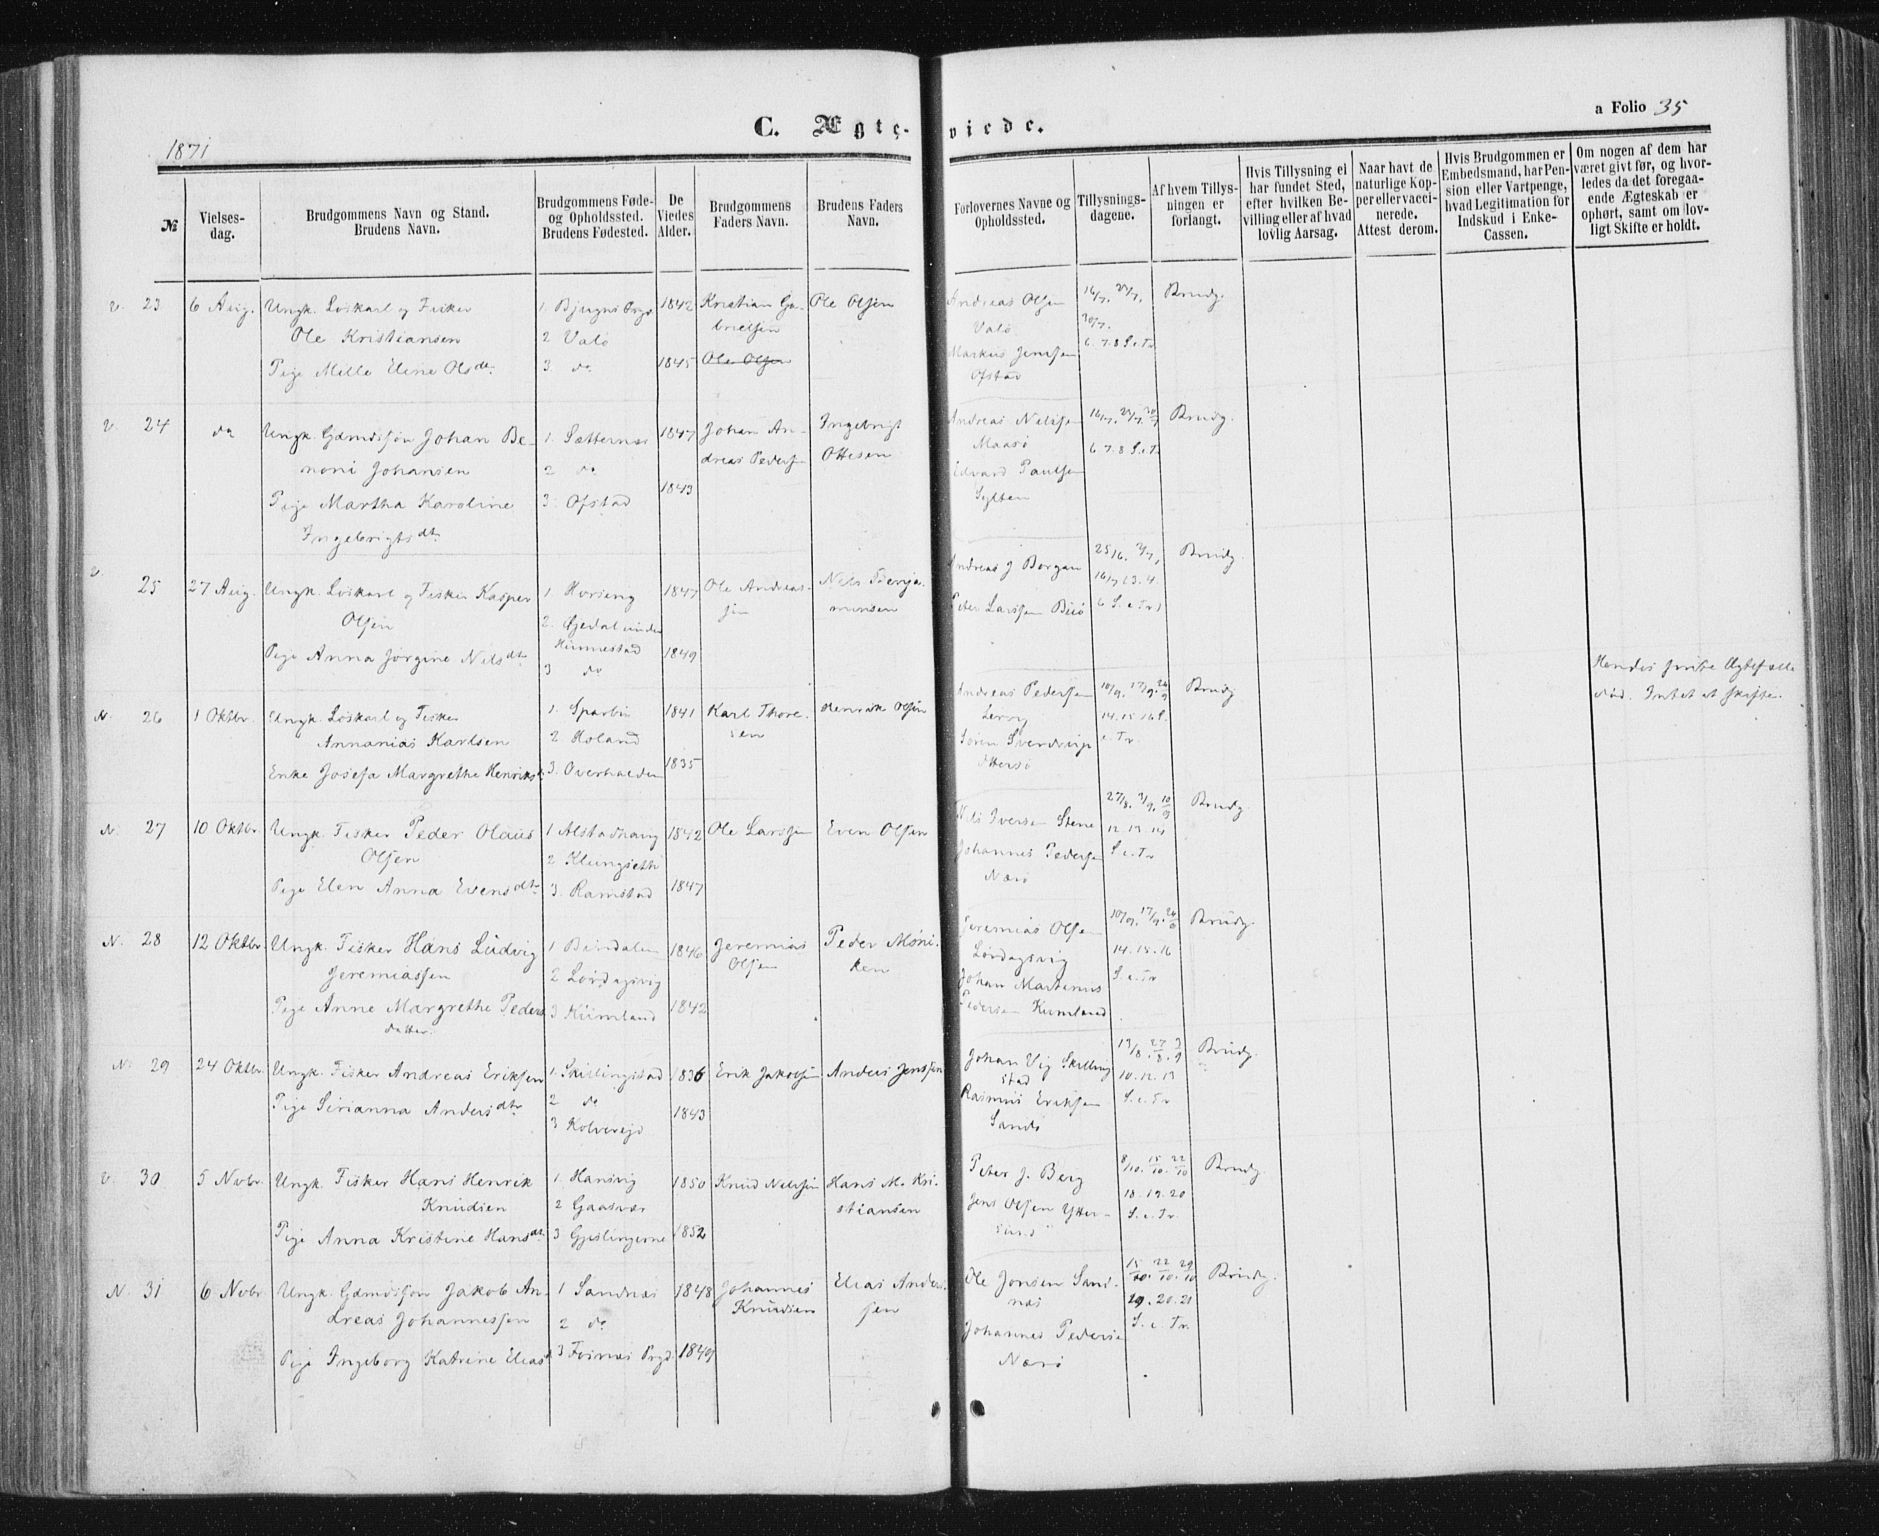 1871
C. Ægte-viede.
a Folio 35
№
Vielses-
dag.
Brudgommens Navn og Stand.
Brudens Navn.
Brudgommens Føde-
og Opholdssted.
Brudens Fødested.
De
Viedes
Alder.
Brudgommens
Faders Navn.
Brudens Faders
Navn.
Forlovernes Navne og
Opholdssted.
Tillysnings-
dagene.
Af hvem Tillys-
ningen er
forlangt.
Hvis Tillysning ei
har fundet Sted,
efter hvilken Be-
villing eller af hvad
lovlig Aarsag.
Naar havt de
naturlige Kop-
per eller vacci-
nerede.
Attest derom.
Hvis Brudgommen er
Embedsmand, har Pen-
sion eller Vartpenge,
hvad Legitimation for
Indskud i Enke-
Cassen.
Om nogen af dem har
været givt før, og hvor-
ledes da det foregaa-
ende Ægteskab er
ophørt, samt om lov-
ligt Skifte er holdt.
V. 23 6 Aug. Ungk. Løskarl og Fisker
Ole Kristiansen
Pige Mille Eline Olsdr.
1. Bjugns Prgj
2 Valø
3. do
1842
1845
Kristian Ga-
brielsen
Ole Olsen
Ole Olsen
Andreas Olsen
Valø
Markus Jensen
Ofstad
16/7. 23/7.
30/7.
6. 7. 8 S. e. Tr.
Brudg.
V. 24 do Ungk. Gdmdsøn Johan Be-
noni Johansen
Pige Martha Karoline
Ingebrigtsdtr
1. Sætternes
2 do
3. Ofstad
1847
1843
Johan An-
dreas Pedersen
Ingebrigt
Ottesen
Andreas Nilssen
Maasø
Edvard Paulsen
Sylten
16/7. 23/7. 30/7
6. 7. 8 S. e. Tr
Brudg.
V. 25 27 Aug. Ungk. Løskarl og Fisker Kasper
Olsen
Pige Anna Jørgine Nilsdtr
1 Horseng
2. Gjedal under
Hunnestad
3 do
1847
1849
Ole Andreas-
sen
Nils Benja-
minsen
Andreas J Borgan
Peter Larssen Biiø
25/6. 2/7.
16/7 . 3. 4.
6 S. e. Tr.
Brudg.
N. 26 1 Oktbr. Ungk. Løskarl og Fisker
Annanias Karlsen
Enke Josefa Margrethe Henriksd
1. Sparbu
2 Foland
3. Overhalden
1841
1835
Karl Thore-
sen
Henrik Olsen
Andreas Pedersen
Lervg
Søren Sverdrup
Ottersø
10/9. 17/9. 24/9
14. 15. 16 S.
e. Tr.
Brudg
Hendes første Ægtefælle
død. Intet at skifte.
N. 27 10 Oktbr. Ungk. Fisker Peder Olaus
Olsen
Pige Elen Anna Evensdtr
1 Alstadhaug
2 Klungseth
3. Ramstad
1842
1847
Ole Larssen
Even Olsen
Nils Iversen Stene
Johannes Pedersen
Nærø
27/8. 3/9. 10/9
12. 13. 14
S. e. Tr.
Brudg.
N. 28 12 Oktbr. Ungk. Fisker Hans Ludvig
Jeremiassen
Pige Anne Margrethe Peders
datter.
1 Beindalen
2 Lørdagsvig
3 Kumland
1846
1842
Jeremias
Olsen
Peder Møni-
ken
Jeremias Olsen
Lørdagsvig
Johan Martinus
Pedersen Kumland
10/9. 17/9. 24/9
14. 15. 16
S. e. Tr
Brudg.
N. 29 24 Oktbr. Ungk. Fisker Andreas Eriksen
Pige Sirianna Andersdtr
1. Skillingstad
2 do
3 Kolvereid
1836
1843
Erik Jakobsen
Anders Jenssen
Johan Vig Skilling
stad
Rasmus Eriksen
Sandø
13/8. 27/8. 3/9
10. 12. 13
S. e. Tr
Brudg.
V. 30 5 Novbr. Ungk. Fisker Hans Henrik
Knudsen
Pige Anna Kristine Hansdtr
1. Hansvig
2 Gaasvær
3 Gjeslingerne
1850
1852
Knud Nilssen
Hans M. Kri-
stiansen
Peter J. Berg
Jens Olsen Ytter-
sund
8/10. 15/10. 22/10
18. 19. 20
S. e. Tr.
Brudg.
N. 31 6 Novbr. Ungk. Gdmdsøn Jakob An-
dreas Johannessen
Pige Ingeborg Katrine Eliasd
1 Sandnæs
2 do
3 Foinæs Prgd.
1848
1849
Johannes
Knudsen
Elias Anders-
sen
Ole Jonsen Sand-
næs
Johannes Pedersen
Nærø
15/10. 22/10. 29/10
19. 20. 21
S. e. Tr.
Brudg.